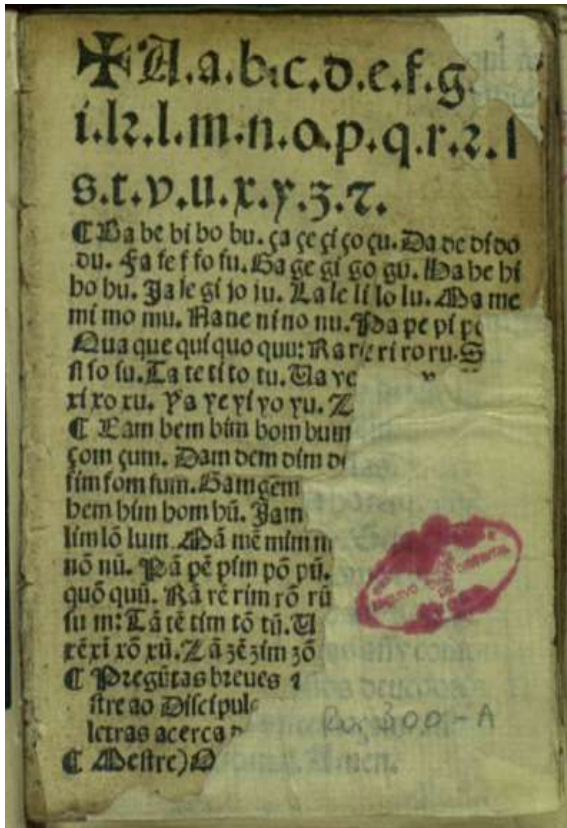 ✠ A.a.b.c.d.e.f.g.
i.k.l.m.n.o.p.q.r.ꝛ.ſ
s.t.v.u.x.y.z.⁊.
¶ Ba be bi bo bu. ça çe çi ço çu. Da de di do
du. Fa fe f fo fu. Ga ge gi go gu. Ha he hi
ho hu. Ja je gi jo ju. La le li lo lu. Ma me
mi mo mu. Na ne ni no nu. Pa pe pi
Qua que qui quo quu: Ra re ri ro ru. S
ſi ſo ſu. Ta te ti to tu. Ua ve
xi xo xu. Ya ye yi yo yu. Z
¶ Bam bem bim bom bum
çom çum. Dam dem dim
fim fom fum. Gam gem
hem him hom hū. Jam
lim lō lum. Mā mē mim m
nō nū. Pā pē pim pō pū.
quō quū. Rā rē rim rō rū
ſu m: Tā tē tim tō tū. U
xē xi xō xū. Zā zē zim zō
¶ Pregūtas breues
ſtre ao Diſcipul
letras acerca
¶ Meſtre) O
Res 300-A